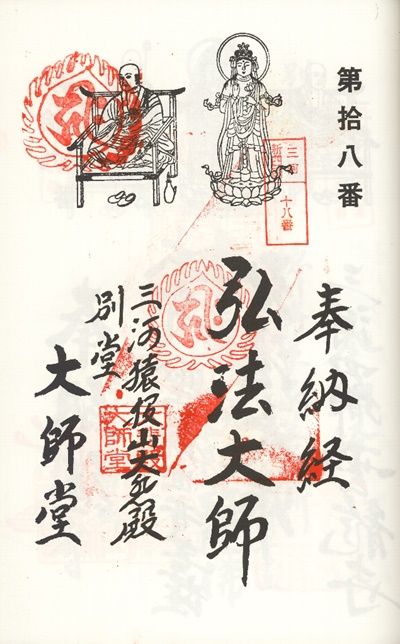 第拾八番
三河
新
十八番
奉納経
弘法大師
三河猿投山大悲殿
別堂
大師堂
大師堂